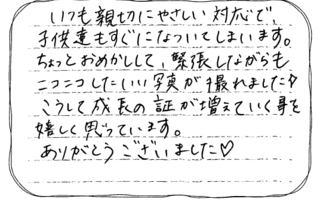 いつも親切にやさしい対応で、
子供達もすぐになついてしまいます。
ちょっとおめかしして、緊張しながらも
ニコニコしたいい写真が撮れました♪
こうして成長の証が増えていく事を
嬉しく思っています。
ありがとうございました♡